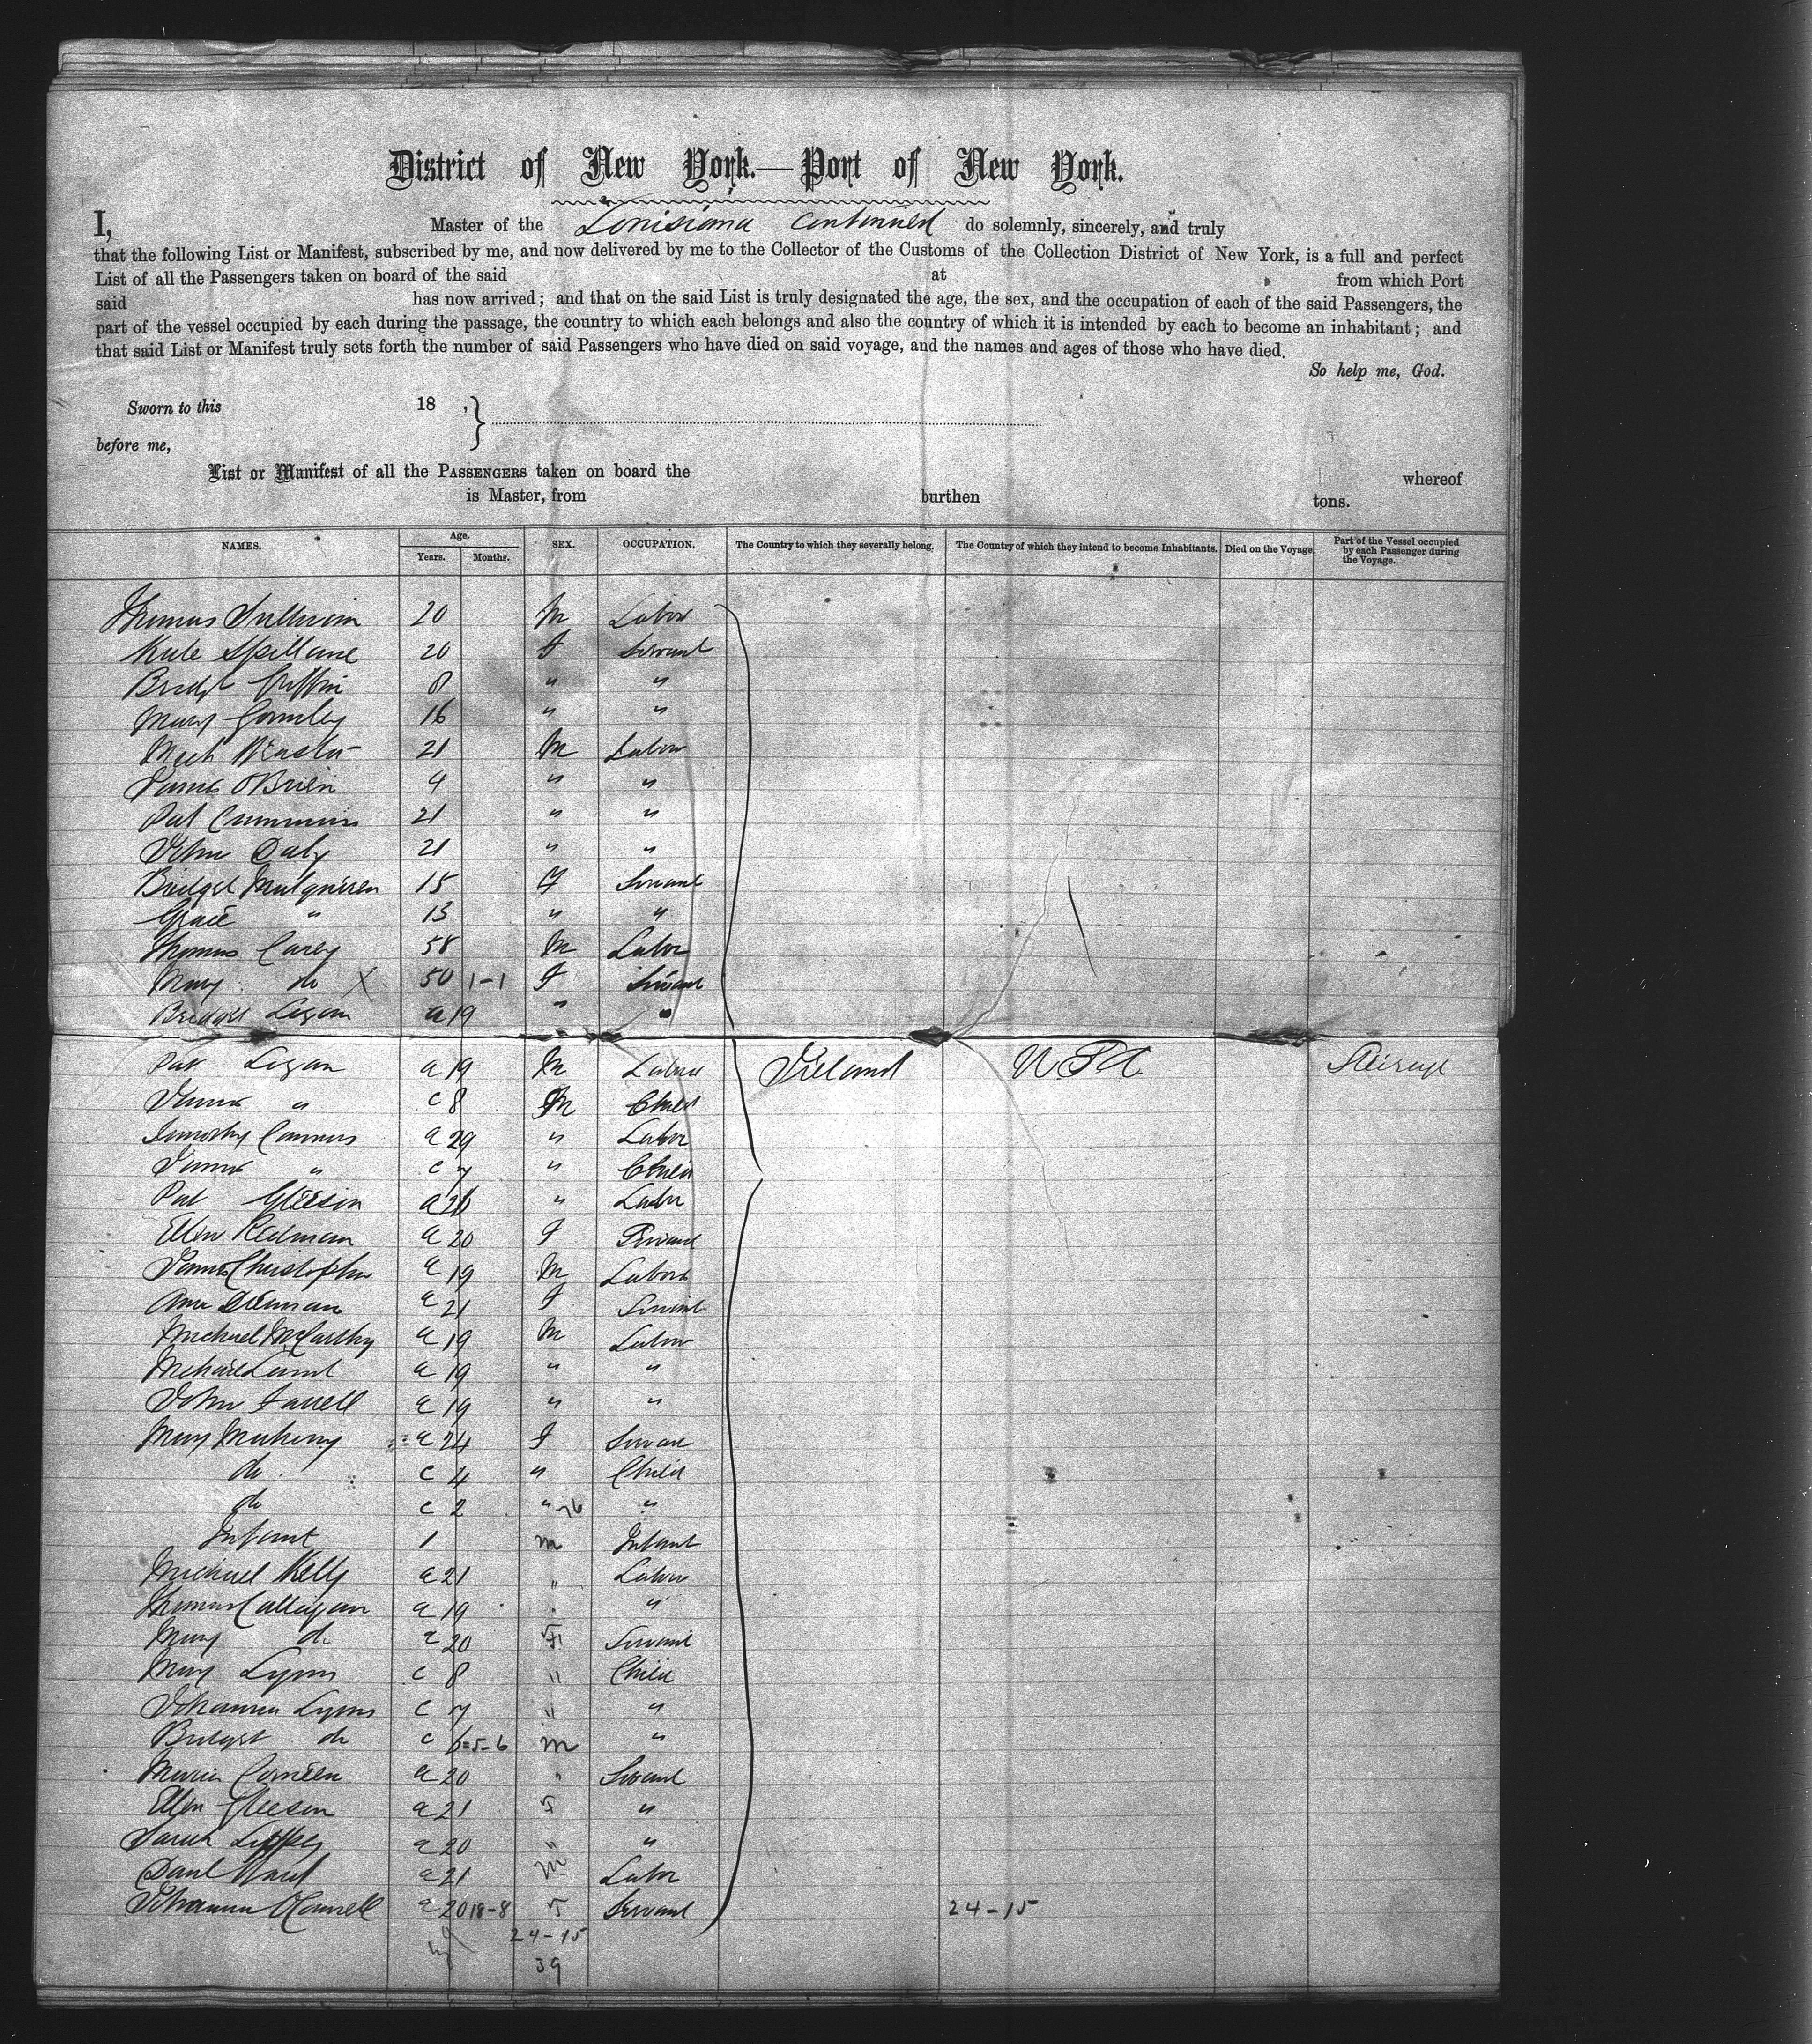 District of New York.—Port of New York.
I, Master of the Louisiana continued do solemnly, sincerely, and truly
that the following List or Manifest, subscribed by me, and now delivered by me to the Collector of the Customs of the Collection District of New York, is a full and perfect
List of all the Passengers taken on board of the said at from which Port
said has now arrived; and that on the said List is truly designated the age, the sex, and the occupation of each of the said Passengers, the
part of the vessel occupied by each during the passage, the country to which each belongs and also the country of which it is intended by each to become an inhabitant; and
that said List or Manifest truly sets forth the number of said Passengers who have died on said voyage, and the names and ages of those who have died.
So help me, God.
Sworn to this 18 ,
before me,
List or Manifest of all the PASSENGERS taken on board the whereof
is Master, from burthen tons.
NAMES. Age. Years. Months. SEX. OCCUPATION. The Country to which they severally belong. The Country of which they intend to become Inhabitants. Died on the Voyage. Part of the Vessel occupied by each Passenger during the Voyage.
Thomas Sullivan 20 M Labor
Kate Spillane 20 F Servant
Bridgt Griffin 8 " "
Mary Gormley 16 " "
21 M Labor
James O'Brien 9 " "
Pat Cummins 21 " "
John Daly 21 " "
Bridget 15 F Servant
Grace " 13 " "
Thomas Carey 58 M Labor
Mary do X 50 1-1 F Servant
Bridget a 19 "
Pat a 19 M Labor Ireland U.S.A.
James " c 8 M Child
Timothy Connors a 29 " Labor
James " c 7 " Child
Pat Gleeson a " Labor
Ellen Redman a 20 F Servant
James Christopher a 19 M Labor
Ann a 21 F Servant
Michael McCarthy a 19 M Labor
Michael a 19 " "
John Farrell a 19 " "
Mary a 24 F Servant
do c 4 " Child
do c 2 " "
Infant 1 m Infant
Michael Kelly a 21 " Labor
Thomas Calligan a 19 "
Mary do a 20 F Servant
Mary Lyons c 8 " Child
Johanna Lyons c 7 " "
Bridget do c 6=5-6 m "
Maria a 20 " Servant
Ellen Gleeson a 21 F "
Sarah a 20 " "
Danl Ward a 21 m Labor
Johanna a 20 18-8 F Servant 24-15
24-15
39